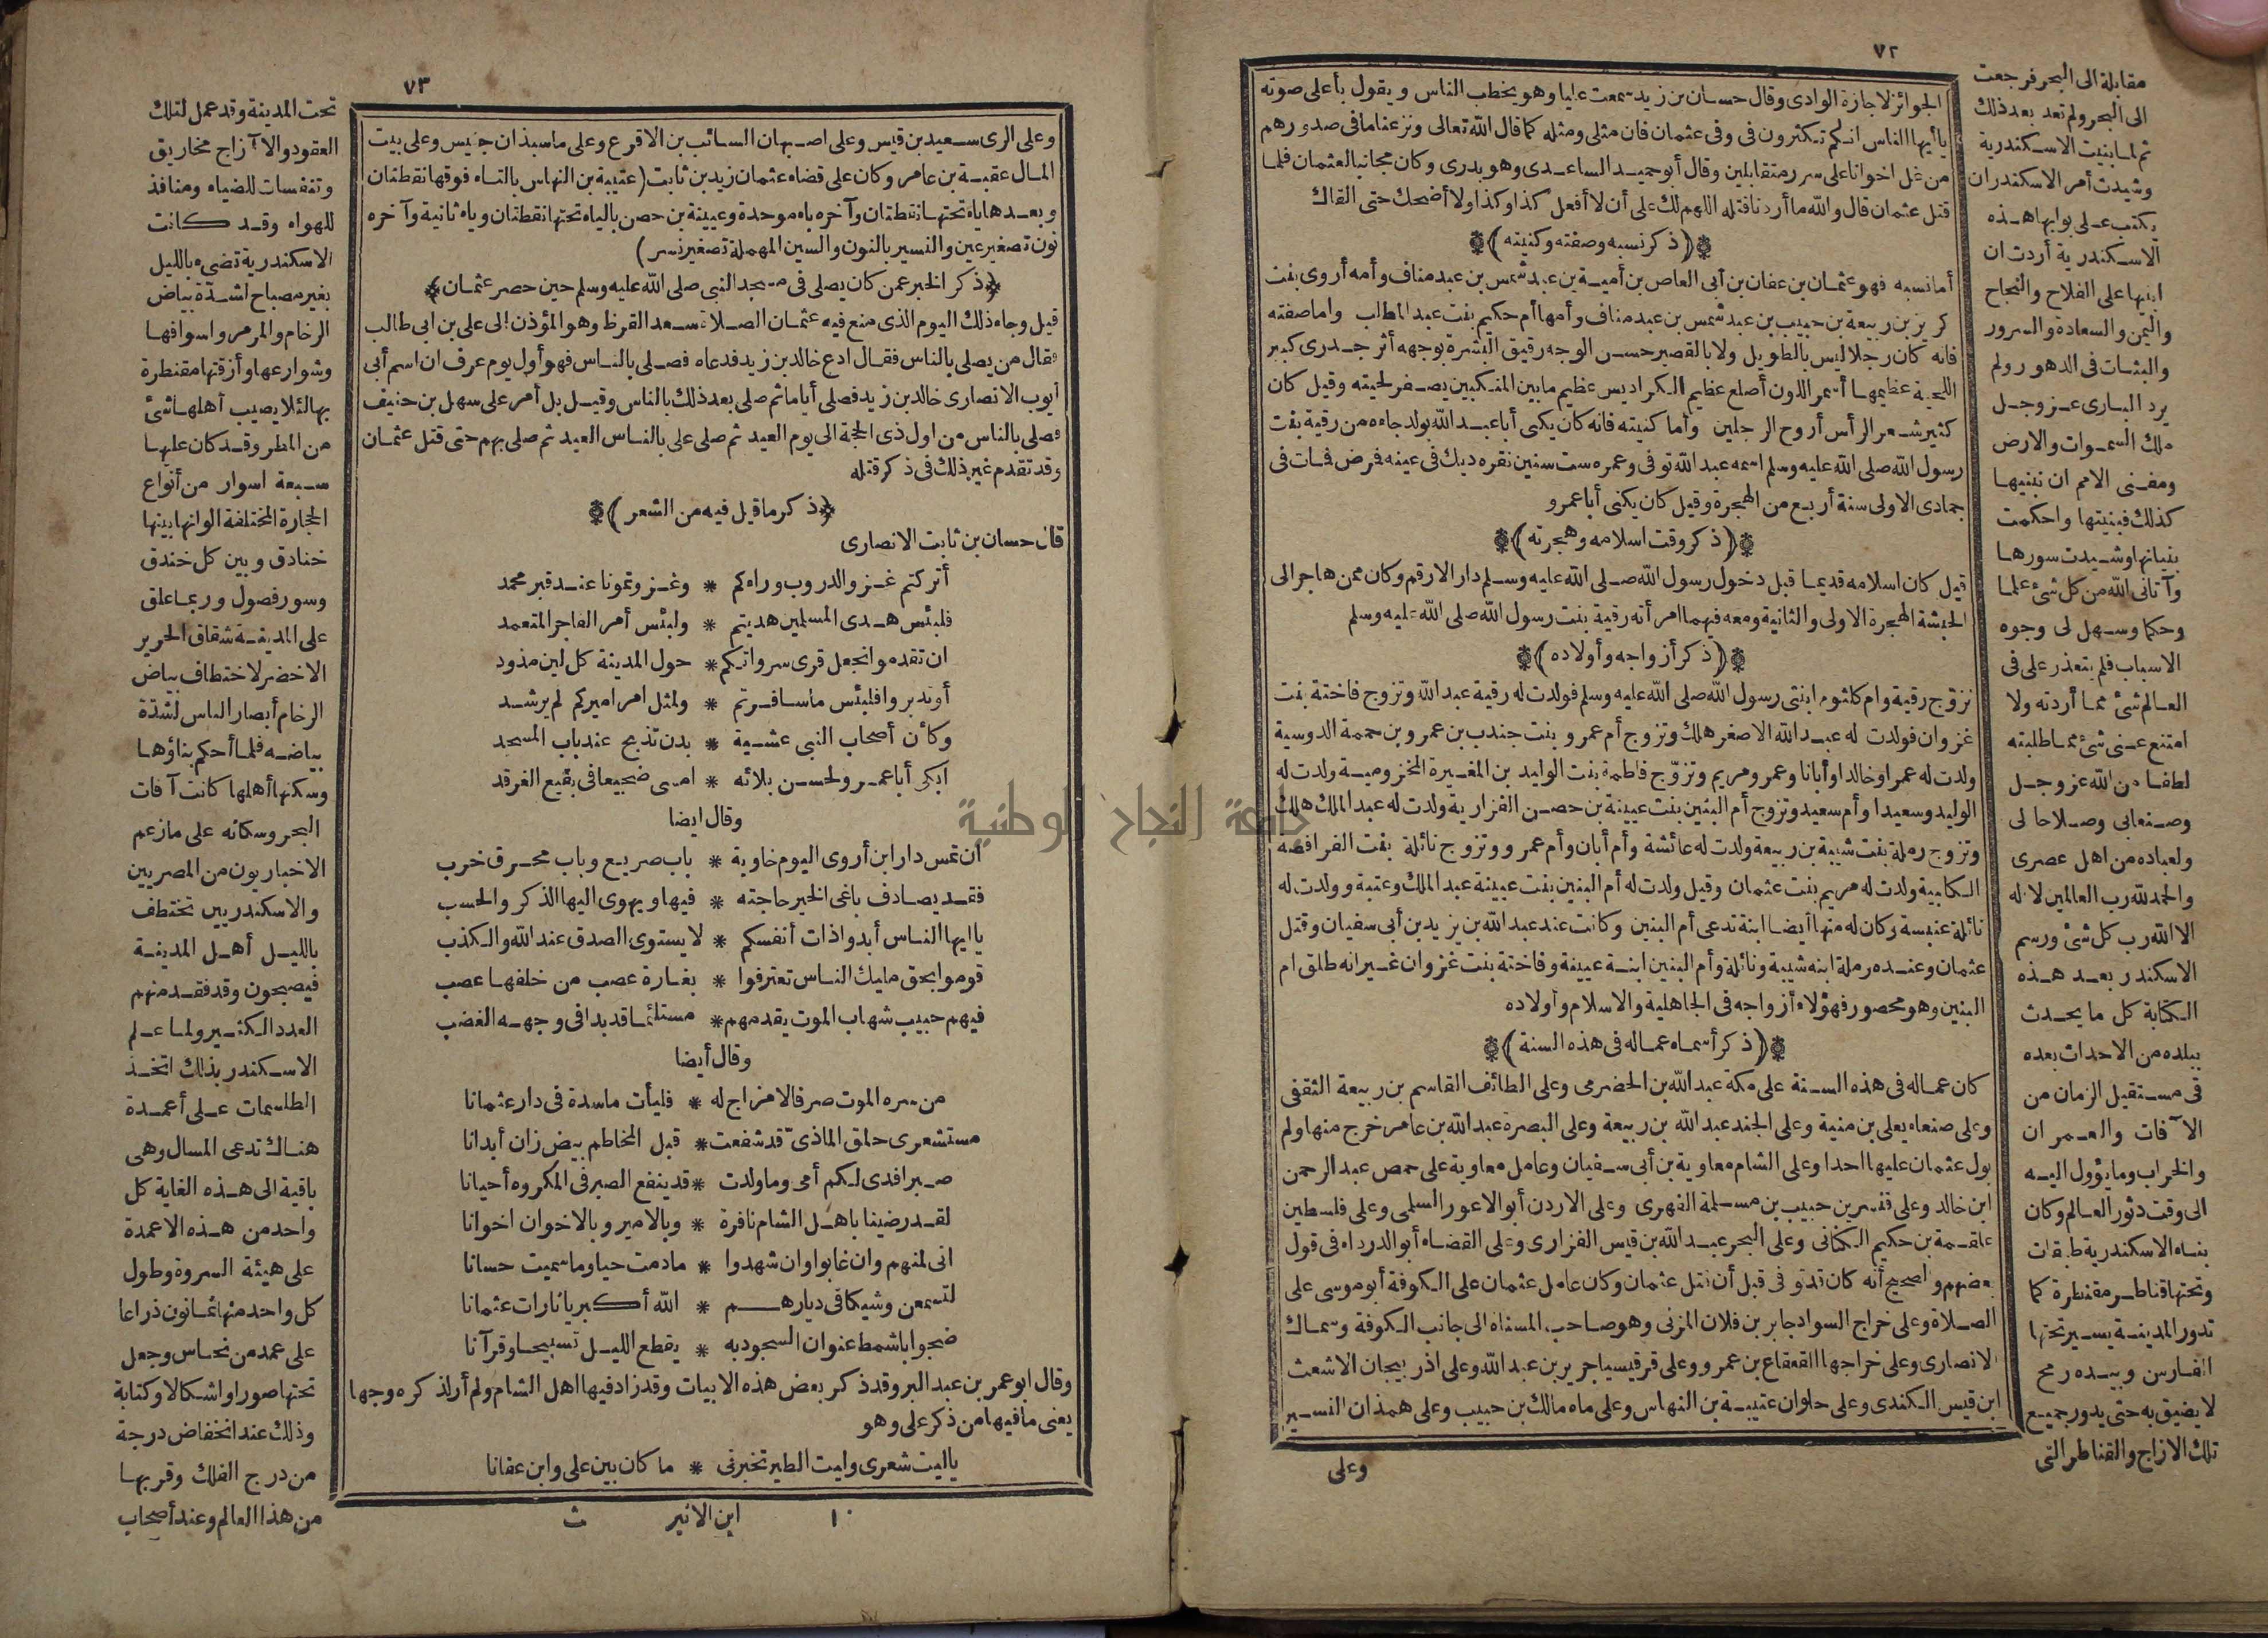 ٧٢
الجوائز لاجازة الوادى وقال حسان بن زيد سمعت عليا وهو يخطب الناس ويقول بأعلى صوته
ياأيها الناس انكم تكثرون فى وفى عثمان فان مثلى ومثله كما قال الله تعالى ونزعنا ما فى صدورهم
من غل اخوانا على سرر متقابلين وقال أبو حميد الساعدى وهو بدرى وكان مجانبا لعثمان فلما
قتل عثمان قال والله ما أردنا قتله اللهم لك على أن لا أفعل كذا وكذا ولا أضحك حتى ألقاك
﴿(ذكر نسبه وصفته وكنيته)﴾
أما نسبه فهو عثمان بن عفان بن أبى العاص بن أمية بن عبد شمس بن عبد مناف وأمه أروى بنت
كريز بن ربيعة بن حبيب بن عبد شمس بن عبد مناف وأمها أم حكيم بنت عبد المطلب واما صفته
فانه كان رجلا ليس بالطويل ولا بالقصير حسن الوجه رقيق البشرة بوجهه أثر جدرى كبير
اللحية عظيمها أسمر اللون أصلع عظيم الكراديس عظيم ما بين المنكبين يصفر لحيته وقيل كان
كثير شعر الرأس أروح الرجلين وأما كنيته فانه كان يكنى أبا عبد الله بولد جاءه من رقية بنت
رسول الله صلى الله عليه وسلم اسمه عبد الله توفى وعمره ست سنين نقره ديك فى عينه فمرض فمات فى
جمادى الاولى سنة أربع من الهجرة وقيل كان يكنى أبا عمرو
﴿(ذكر وقت اسلامه وهجرته)﴾
قيل كان اسلامه قديما قبل دخول رسول الله صلى الله عليه وسلم دار الارقم وكان ممن هاجر الى
الحبشة الهجرة الاولى والثانية ومعه فيهما امرأته رقية بنت رسول الله صلى الله عليه وسلم
﴿(ذكر أزواجه وأولاده)﴾
تزوّج رقية وام كلثوم ابنتى رسول الله صلى الله عليه وسلم فولدت له رقية عبد الله وتزوج فاختة بنت
غزوان فولدت له عبد الله الاصغر هلك وتزوج أم عمرو بنت جندب بن عمرو بن حممة الدوسية
ولدت له عمرا وخالدا وأبانا وعمر ومريم وتزوّج فاطمة بنت الوليد بن المغيرة المخزومية ولدت له
الوليد وسعيدا وأم سعيد وتزوج أم البنين بنت عيينة بن حصن الفزارية ولدت له عبد الملك هلك
وتزوج رملة بنت شيبة بن ربيعة ولدت له عائشة وأم أبان وأم عمرو وتزوج نائلة بنت الفرافصة
الكلبية ولدت له مريم بنت عثمان وقيل ولدت له أم البنين بنت عيينة عبد الملك وعتبة وولدت له
نائلة عنبسة وكان له منها أيضا ابنة تدعى أم البنين وكانت عند عبد الله بن يزيد بن أبى سفيان وقتل
عثمان وعنده رملة ابنة شيبة ونائلة وأم البنين ابنة عيينة وفاختة بنت غزوان غير انه طلق ام
البنين وهو محصور فهؤلاء أزواجه فى الجاهلية والاسلام وأولاده
﴿(ذكر أسماء عماله فى هذه السنة)﴾
كان عماله فى هذه السنة على مكة عبد الله بن الحضرمى وعلى الطائف القاسم بن ربيعة الثقفى
وعلى صنعاء يعلى بن منية وعلى الجند عبد الله بن ربيعة وعلى البصرة عبد الله بن عامر خرج منها ولم
يول عثمان عليها احدا وعلى الشام معاوية بن أبى سفيان وعامل معاوية على حمص عبد الرحمن
ابن خالد وعلى قنسرين حبيب بن مسلمة الفهرى وعلى الاردن أبو الاعور السلمى وعلى فلسطين
علقمة بن حكيم الكنانى وعلى البحر عبد الله بن قيس الفزارى وعلى القضاء أبو الدرداء فى قول
بعضهم والصحيح أنه كان قد توفى قبل أن قتل عثمان وكان عامل عثمان على الكوفة أبو موسى على
الصلاة وعلى خراج السواد جابر بن فلان المزنى وهو صاحب المسناة الى جانب الكوفة وسماك
الانصارى وعلى خراجها القعقاع بن عمرو وعلى قرقيسيا جرير بن عبد الله وعلى اذربيجان الاشعث
ابن قيس الكندى وعلى حلوان عتيبة بن النهاس وعلى ماه مالك بن حبيب وعلى همذان النسير
وعلى
مقابلة الى البحر فرجعت
الى البحر ولم تعد بعد ذلك
ثم لما بنيت الاسكندرية
وشيدت أمر الاسكندر ان
يكتب على بوابها هذه
الاسكندرية أردت ان
ابنيها على الفلاح والنجاح
واليمن والسعادة والسرور
والثبات فى الدهور ولم
يرد البارى عز وجل
ملك السموات والارض
ومفنى الامم ان نبنيها
كذلك فبنيتها واحكمت
بنيانها وشيدت سورها
وآتانى الله من كل شئ علما
وحكما وسهل لى وجوه
الاسباب فلم يتعذر على فى
العالم شئ مما أردته ولا
امتنع عنى شئ مما طلبته
لطفا من الله عز وجل
وصنعا بى وصلاحا لى
ولعباده من اهل عصرى
والحمد لله رب العالمين لا اله
الا الله رب كل شئ ورسم
الاسكندر بعد هذه
الكتابة كل ما يحدث
ببلده من الاحداث بعده
فى مستقبل الزمان من
الآفات والعمران
والخراب وما يؤول اليه
الى وقت دثور العالم وكان
بناء الاسكندرية طبقات
وتحتها قناطر مقنطرة كما
تدور المدينة يسير تحتها
الفارس وبيده رمح
لا يضيق به حتى يدور جميع
تلك الازاج والقناطر التى
٧٣
وعلى الرى سعيد بن قيس وعلى اصبهان السائب بن الاقرع وعلى ماسبذان حنيس وعلى بيت
المال عقبة بن عامر وكان على قضاء عثمان زيد بن ثابت (عتيبة بن النهاس بالتاء فوقها نقطتان
وبعدها ياء تحتها نقطتان وآخره باء موحدة وعيينة بن حصن بالياء تحتها نقطتان وياء ثانية وآخره
نون تصغير عين والنسير بالنون والسين المهملة تصغير نسر)
﴿ذكر الخبر عمن كان يصلى فى مسجد النبى صلى الله عليه وسلم حين حصر عثمان﴾
قيل وجاء ذلك اليوم الذى منع فيه عثمان الصلاة سعد القرظ وهو المؤذن الى على بن ابى طالب
فقال من يصلى بالناس فقال ادع خالد بن زيد فدعاه فصلى بالناس فهو أول يوم عرف ان اسم أبى
أيوب الانصارى خالد بن زيد فصلى أياما ثم صلى بعد ذلك بالناس وقيل بل أمر على سهل بن حنيف
فصلى بالناس من اول ذى الحجة الى يوم العيد ثم صلى على بالناس العيد ثم صلى بهم حتى قتل عثمان
وقد تقدم غير ذلك فى ذكر قتله
﴿ذكر ما قيل فيه من الشعر﴾
قال حسان بن ثابت الانصارى
أتركتم غزو الدروب وراءكم * وغزوتمونا عند قبر محمد
فلبئس هدى المسلمين هديتم * ولبئس أمر الفاجر المتعمد
ان تقدموا نجعل قرى سرواتكم * حول المدينة كل لين مذود
أو تدبروا فلبئس ما سافرتم * ولمثل امر اميركم لم يرشد
وكأن أصحاب النبى عشية * بدن تذبح عند باب المسجد
ابكى أبا عمرو لحسن بلائه * امسى ضجيعا فى بقيع الغرقد
وقال ايضا
ان تمس دار ابن أروى اليوم خاوية * باب صريع وباب محرق خرب
فقد يصادف باغى الخير حاجته * فيها ويهوى اليها الذكر والحسب
ياايها الناس أبدوا ذات أنفسكم * لا يستوى الصدق عند الله والكذب
قوموا بحق مليك الناس تعترفوا * بغارة عصب من خلفها عصب
فيهم حبيب شهاب الموت يقدمهم * مستلئما قد بدا فى وجهه الغضب
وقال أيضا
من سره الموت صرفا لا مزاج له * فليأت ماسدة فى دار عثمانا
مستشعرى حلق الماذىّ قد شفعت * قبل المخاطم بيض زان أبدانا
صبرا فدى لكم أمى وما ولدت * قد ينفع الصبر فى المكروه أحيانا
لقد رضينا باهل الشام نافرة * وبالامير وبالاخوان اخوانا
انى لمنهم وان غابوا وان شهدوا * ما دمت حيا وما سميت حسانا
لتسمعن وشيكا فى ديارهم * الله أكبر ياثارات عثمانا
ضحوا باشمط عنوان السجود به * يقطع الليل تسبيحا وقرآنا
وقال ابو عمر بن عبد البر وقد ذكر بعض هذه الابيات وقد زاد فيها اهل الشام ولم أر لذكره وجها
يعنى ما فيها من ذكر على وهو
ياليت شعرى وليت الطير تخبرنى * ما كان بين على وابن عفانا
١٠ ابن الاثير ث
تحت المدينة وقد عمل لتلك
العقود والآزاج مخاريق
وتنفسات للضياء ومنافذ
للهواء وقد كانت
الاسكندرية تضىء بالليل
بغير مصباح لشدة بياض
الرخام والمرمر واسواقها
وشوارعها وأزقتها مقنطرة
بها لئلا يصيب أهلها شئ
من المطر وقد كان عليها
سبعة اسوار من أنواع
الحجارة المختلفة الوانها بينها
خنادق وبين كل خندق
وسور فصول وربما علق
على المدينة شقاق الحرير
الاخضر لاختطاف بياض
الرخام أبصار الناس لشدة
بياضه فلما أحكم بناؤها
وسكنها أهلها كانت آفات
البحر وسكانه على ما زعم
الاخباريون من المصريين
والاسكندريين تختطف
بالليل أهل المدينة
فيصبحون وقد فقد منهم
العدد الكثير ولما علم
الاسكندر بذلك اتخذ
الطلسمات على أعمدة
هناك تدعى المسال وهى
باقية الى هذه الغاية كل
واحد من هذه الاعمدة
على هيئة السروة وطول
كل واحد منها ثمانون ذراعا
على عمد من نحاس وجعل
تحتها صورا واشكالا وكتابة
وذلك عند انخفاض درجة
من درج الفلك وقربها
من هذا العالم وعند أصحاب
جامعة النجاح الوطنية